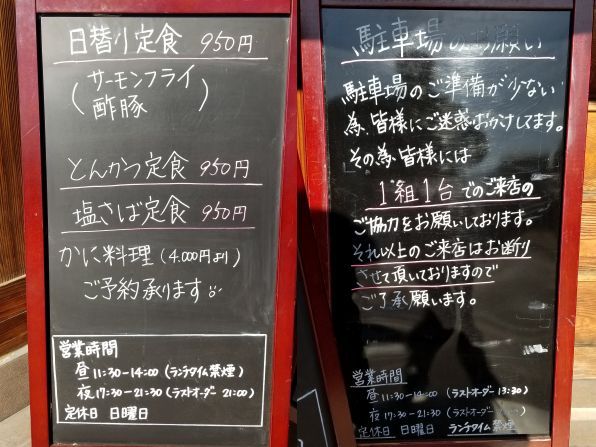 日替り定食 950円
(サーモンフライ
酢豚)
とんかつ定食 950円
塩さば定食 950円
かに料理(4.000円より)
ご予約承ります
営業時間
昼 11:30-14:00 (ランチタイム禁煙)
夜 17:30-21:30 (ラストオーダー 21:00)
定休日 日曜日
駐車場のお願い
駐車場のご準備が少ない
為、皆様にご迷惑おかけしてます。
その為、皆様には
1組1台でのご来店の
ご協力をお願いしております。
それ以上のご来店はお断り
させて頂いておりますので
ご了承願います。
営業時間
昼 11:30-14:00 (ラストオーダー 13:30)
夜 17:30-21:30 (ラストオーダー
定休日 日曜日 ランチタイム禁煙